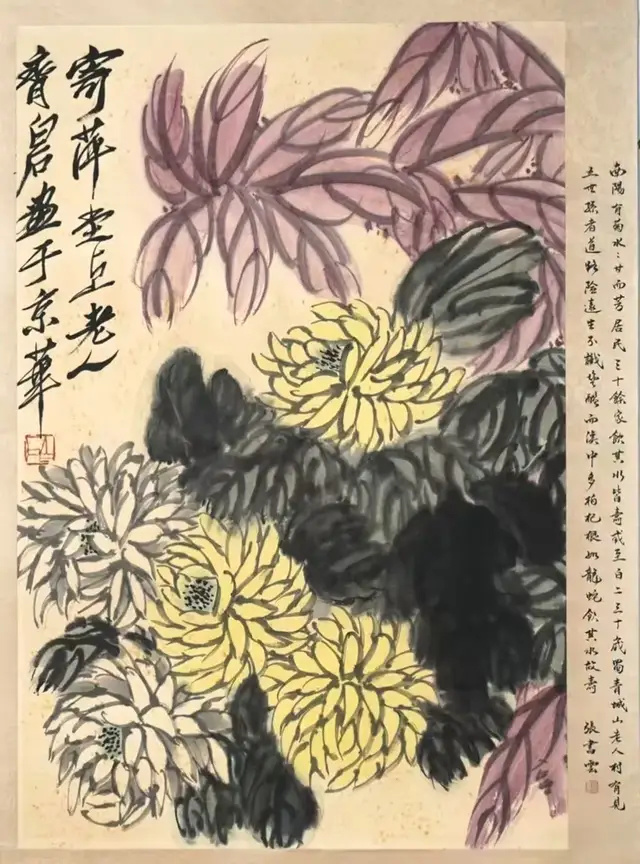 寄萍堂上老人
齊白石畫于京華
南陽有菊水〻甘而芳居民三十餘家飲其水皆壽或至百二三十歲蜀青城山老人村有見
五世孫者道極險遠生不識鹽醯而溪中多枸杞根如龍蛇飲其水故壽 張書雲